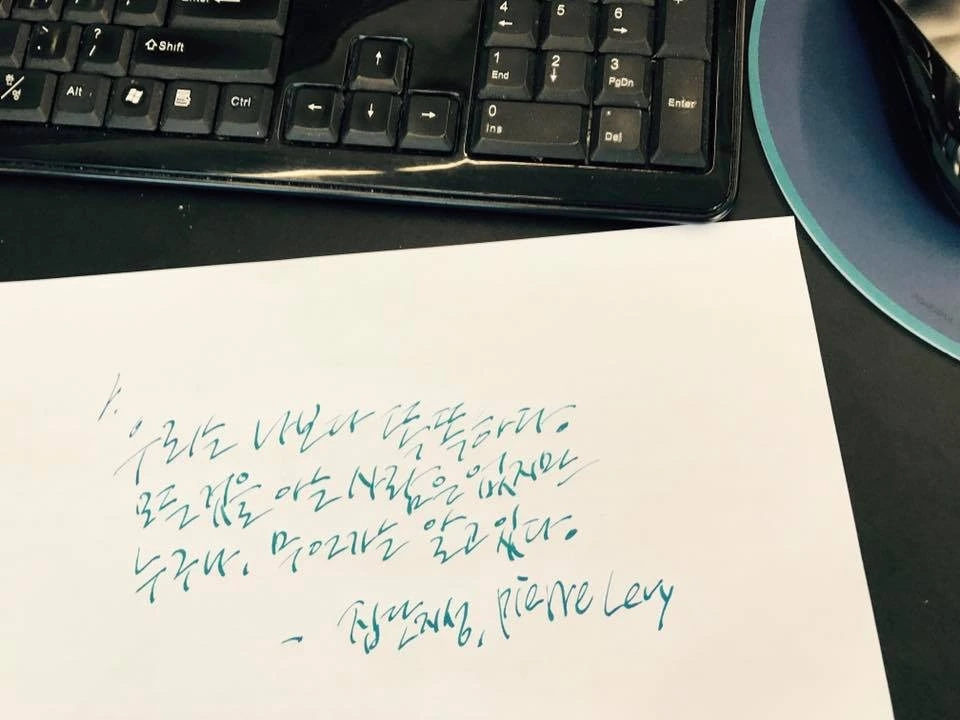 Enter
4
5
6
+
?
/
Shift
1
End
2
3
PgDn
Enter
한/영
Alt
Ctrl
0
Ins
.
Del
1.
우리는 나보다 똑똑하다.
모든 것을 아는 사람은 없지만
누구나, 무언가는 알고 있다.
- 집단지성, pierre Levy